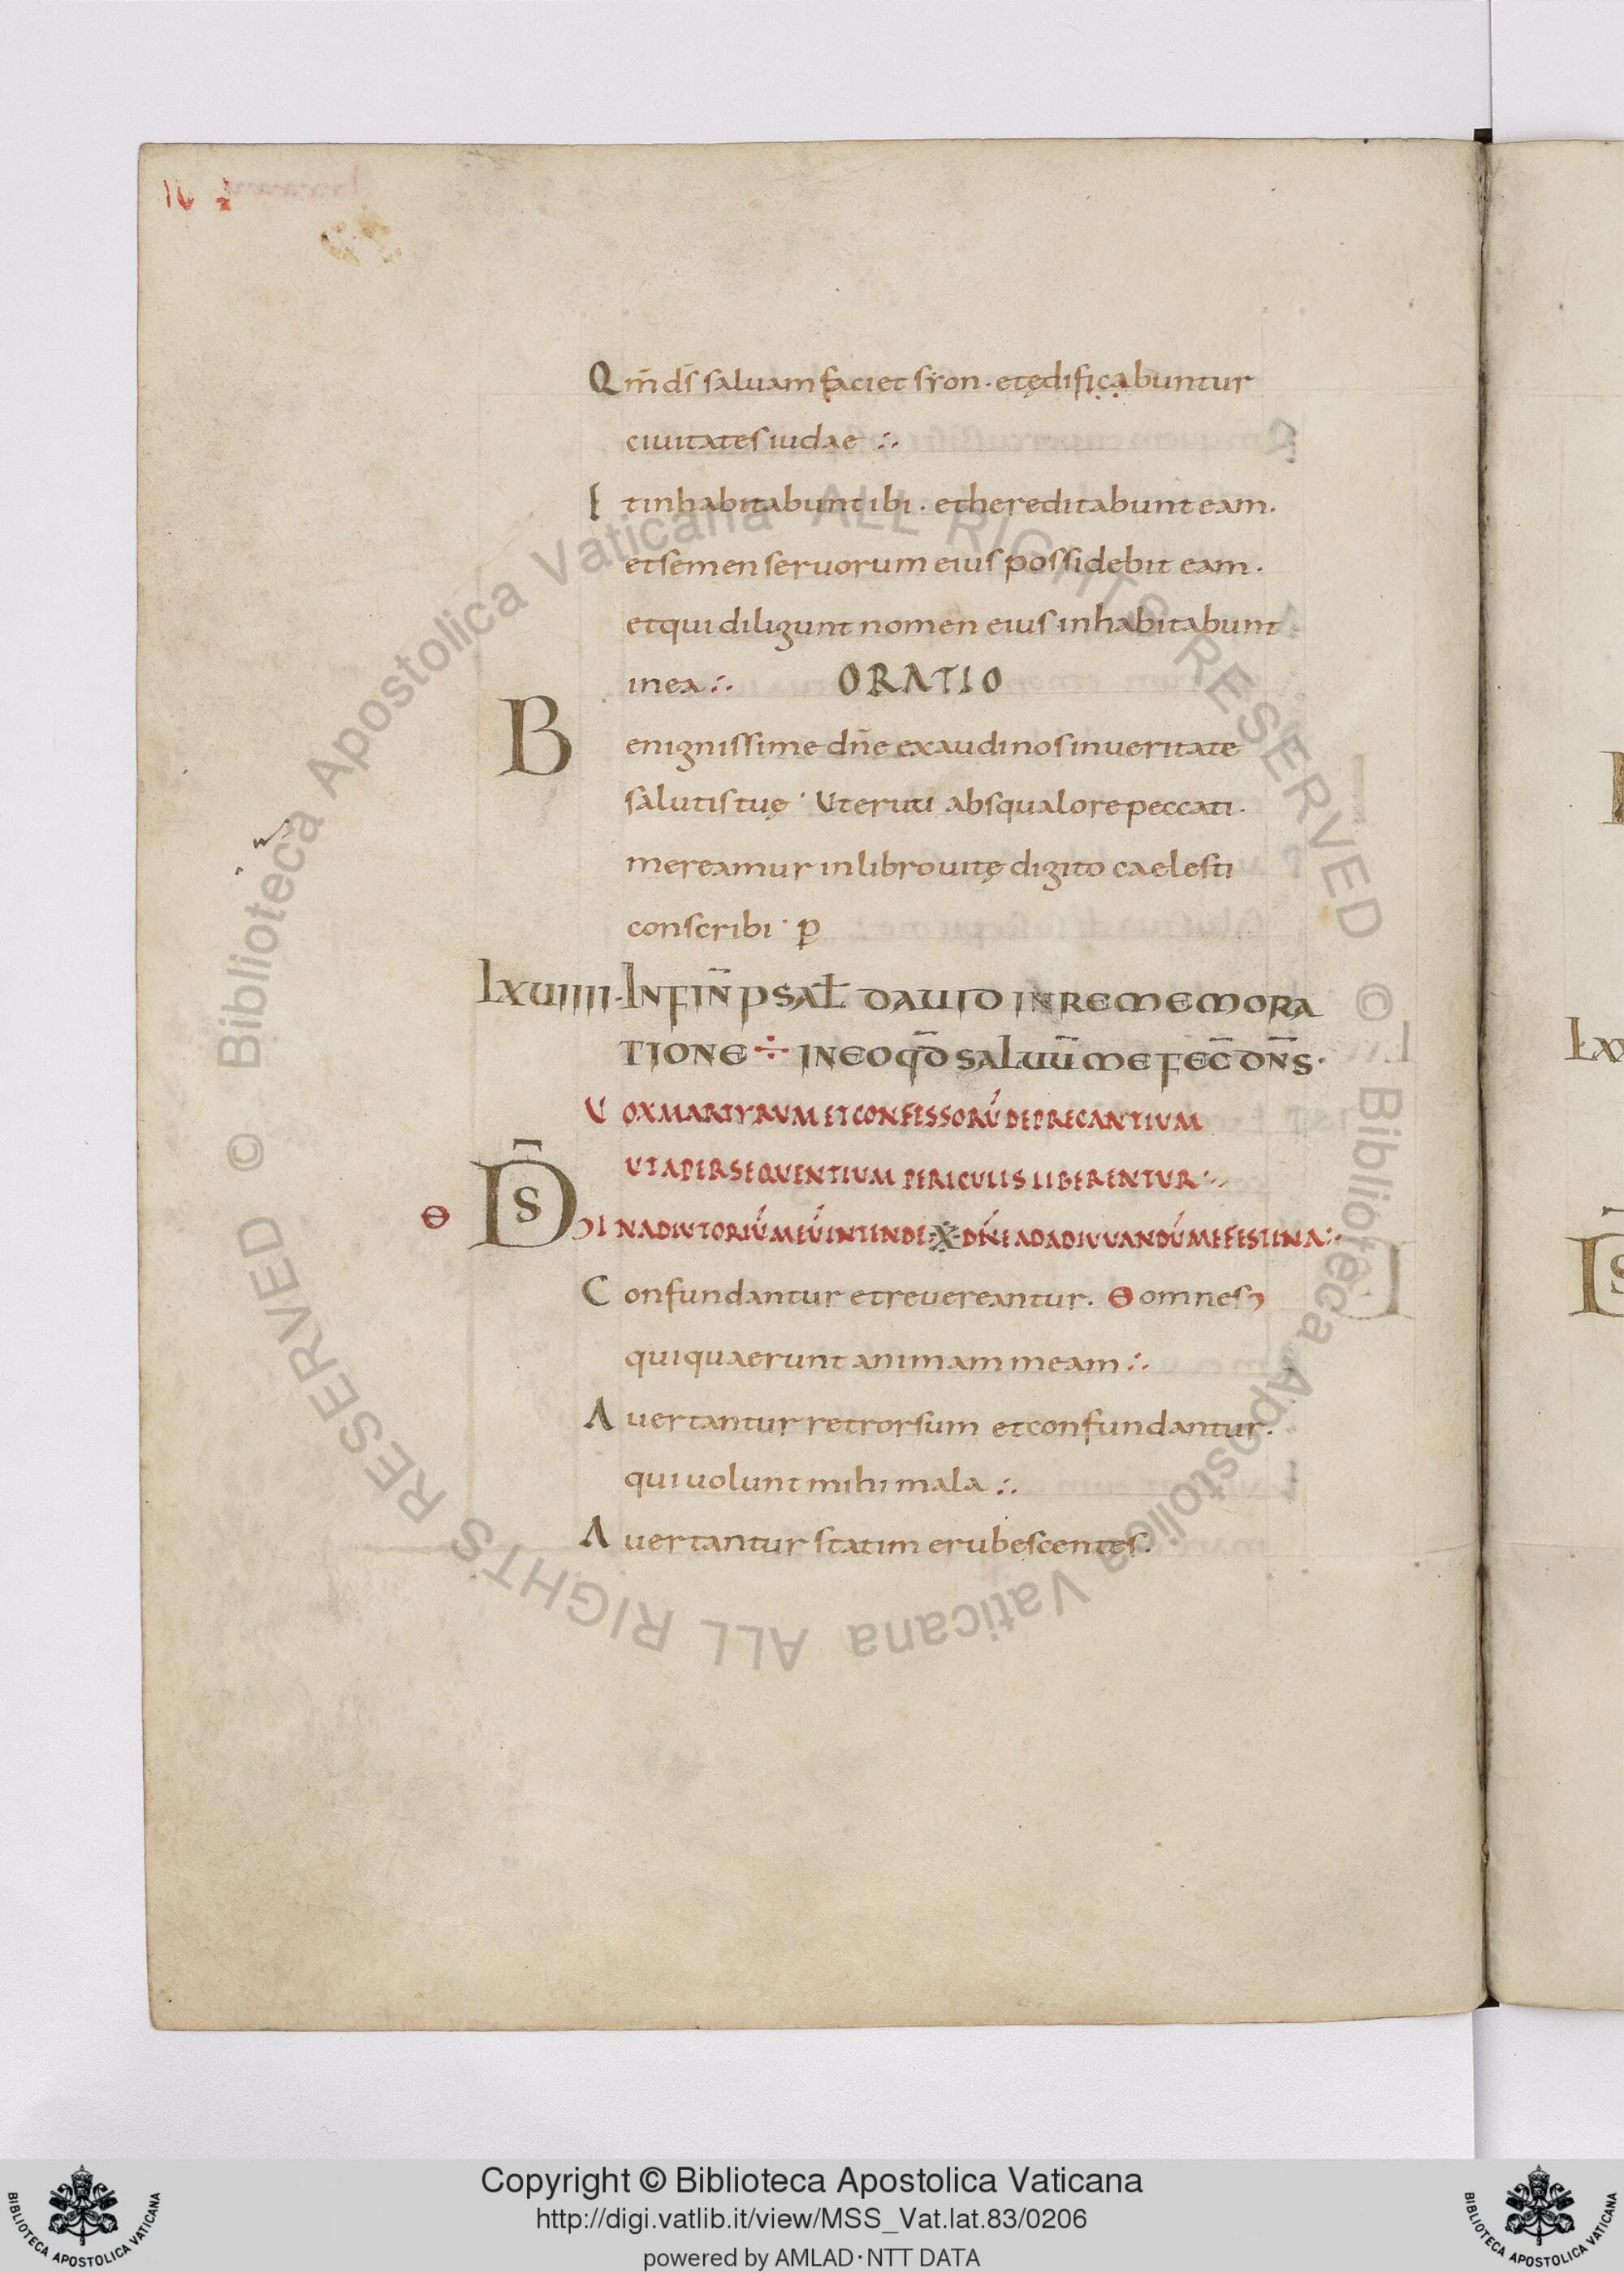 Qm̄ ds̄ saluam faciet syon · et ędificabuntur
ciuitates iudae ∴
Et inhabitabunt ibi · et hereditabunt eam ·
et semen seruorum eius possidebit eam ·
et qui diligunt nomen eius inhabitabunt
in ea ∴ ORATIO
Benignissime dn̄e exaudi nos in ueritate
salutis tuę · Ut eruti ab squalore peccati ·
mereamur in libro uitę digito caelesti
conscribi · p
LXVIIII · IN FIN̄ PSAŁ DAUID IN REMEMORA
TIONE ÷ IN EO QD̄ SALUŪ ME FEC̄ DN̄S ·
UOX MARTYRUM ET CONFESSORŪ DEPRECANTIUM
UT A PERSEQUENTIUM PERICULIS LIBERENTUR
D̄S IN ADIUTORIŪ MEŪ INTENDE ※ DN̄E AD ADIUUANDŪ ME FESTINA
Confundantur et reuereantur · Θ omnes
qui quaerunt animam meam ∴
Auertantur retrorsum et confundantur ·
qui uolunt mihi mala ∴
Auertantur statim erubescentes ·
© Biblioteca Apostolica Vaticana ALL RIGHTS RESERVED
© Biblioteca Apostolica Vaticana ALL RIGHTS RESERVED
Copyright © Biblioteca Apostolica Vaticana
http://digi.vatlib.it/view/MSS_Vat.lat.83/0206
powered by AMLAD·NTT DATA
BIBLIOTECA APOSTOLICA VATICANA
BIBLIOTECA APOSTOLICA VATICANA